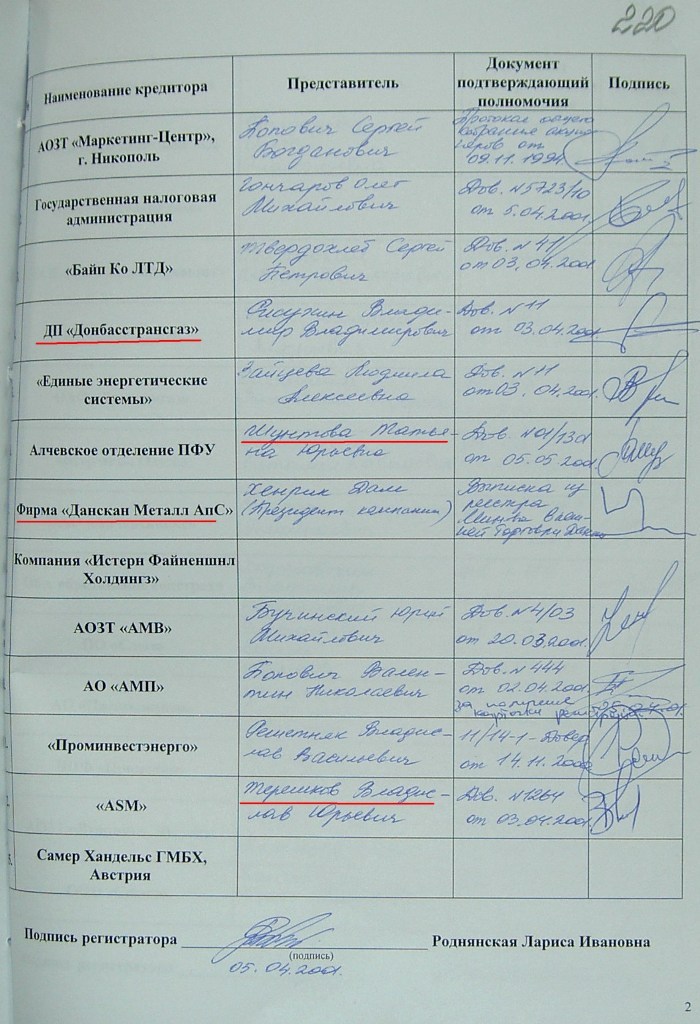 220
Наименование кредитора
Представитель
Документ
подтверждающий
полномочия
Подпись
АОЗТ «Маркетинг-Центр»,
г. Никополь
Попович Сергей
Богданович
Протокол общего
собрания акцио-
неров от
09.11.1994
Государственная налоговая
администрация
Гончаров Олег
Михайлович
Дов. №5723/10
от 5.04.2001.
«Байп Ко ЛТД»
Твердохлеб Сергей
Петрович
Дов. №41
от 03.04.2001
ДП «Донбасстрансгаз»
Влади-
мир Владимирович
Дов. №11
от 03.04.2001
«Единые энергетические
системы»
Зайцева Людмила
Алексеевна
Дов. №11
от 03.04.2001
Алчевское отделение ПФУ
Шунтова Татья-
на Юрьевна
Дов. №01/1301
от 05.05.2001
Фирма «Данскан Металл АпС»
Хенрик Дам
(Президент компании)
Выписка из
реестра
Мин-ва
Торговли Дании
Компания «Истерн Файненшнл
Холдингз»
АОЗТ «АМВ»
Бучинский Юрий
Михайлович
Дов. №4/03
от 20.03.2001.
АО «АМП»
Попович Вален-
тин Николаевич
Дов. №444
от 02.04.2001
за получение
карточки
«Проминвестэнерго»
Решетняк Владис-
лав Васильевич
11/14-1- Довер
от 14.11.2000
«ASM»
Терешков Владис-
лав Юрьевич
Дов. №1264
от 03.04.2001
Самер Хандельс ГМБХ,
Австрия
Подпись регистратора Роднянская Лариса Ивановна
(подпись)
05.04.2001.
2